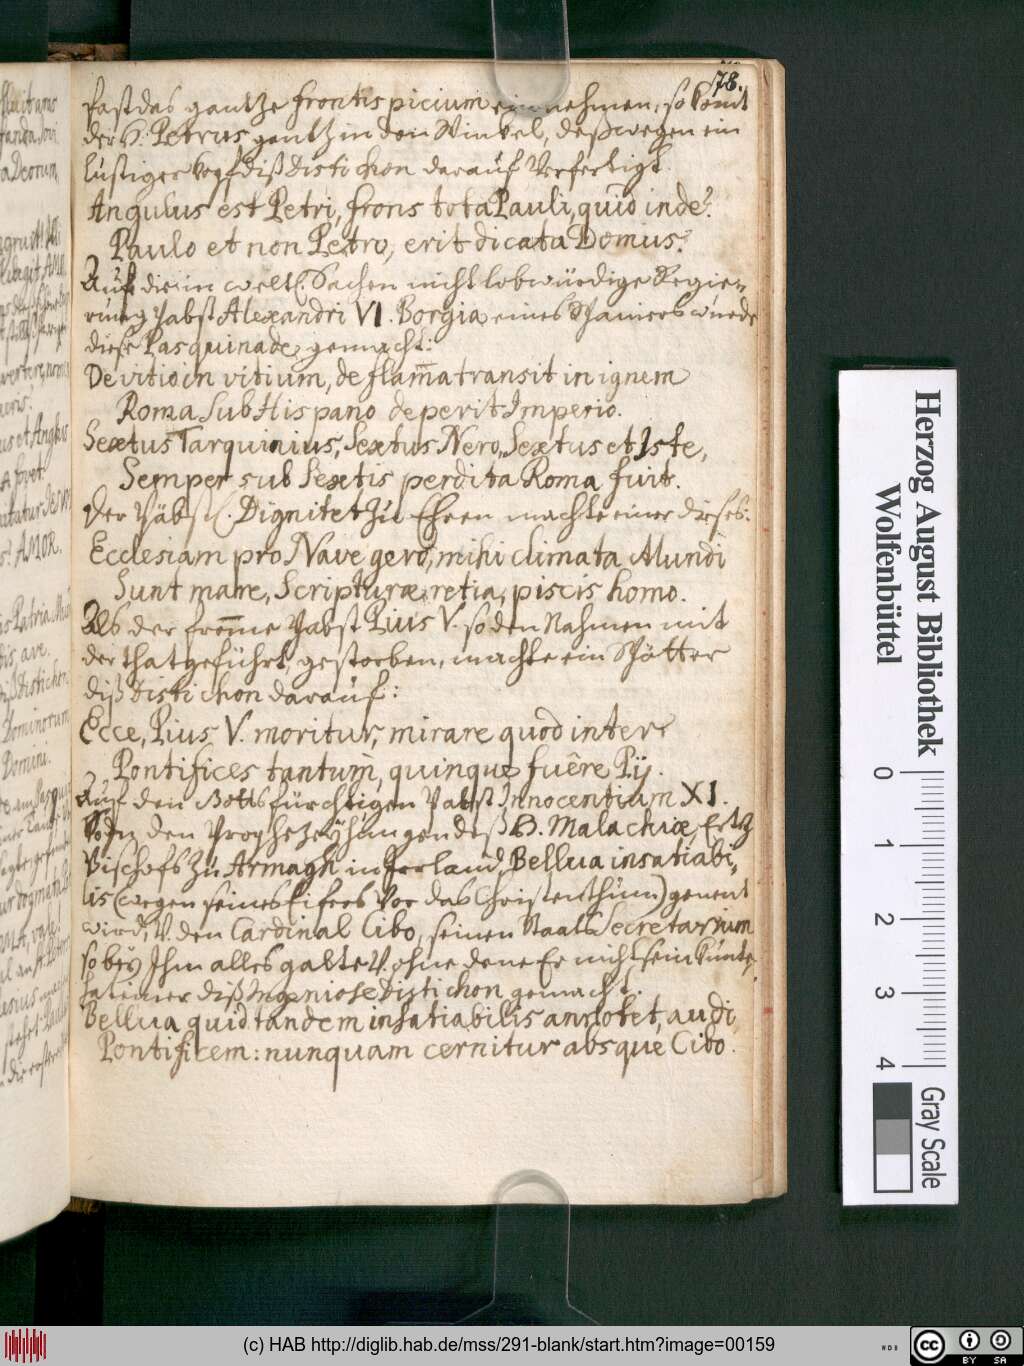 78.
fast das gantze frontispicium einnehmen, so komt
der H. Petrus gantz in den Winkel, deßwegen ein
lustiger Kopf diß Distichon darauf Verfertigt.
Angulus est Petri, frons tota Pauli, quid inde?
Paulo et non Petro, erit dicata Domus.
Auf die in weltl. Sachen nicht lobwürdige Regie-
rung Pabst Alexandri VI. Borgia eines Spaniers wurde
diese Pasquinade gemacht:
De vitio in vitium, de flam̄a transit in ignem
Roma sub Hispano deperit Imperio.
Sextus Tarquinius, Sextus Nero, Sextus et Iste,
Semper sub Sextis perdita Roma fuit.
Der Päbstl. Dignitet zu Ehren machte einer dieses:
Ecclesiam pro Nave gero, mihi climata Mundi
Sunt mare, Scripturæ retia, piscis homo.
Als der from̄e Pabst Pius V. so den Nahmen mit
der that geführt, gestorben, machte ein Spötter
diß Distichon darauf:
Ecce, Pius V. moritur, mirare quod inter
Pontifices tantum, quinque fuêre Pij.
Auf den Gottsfürchtigen Pabst Innocentium XI.
So in den Prophezeyhungen deß B. Malachiæ, Ertz
Bischofs zu Armagh in Irrland, Bellua insatiabi-
lis (wegen seines Eifers Vor das Christenthum) genent
wird, V. den Cardinal Cibo, seinen Staats Secretarium
so bey Ihm alles galte V. ohne dene Er nicht sein kunte,
hat einer diß Ingeniose Distichon gemacht.
Bellua quid tandem insatiabilis annotet, audi
Pontificem: nunquam cernitur absque Cibo.
Herzog August Bibliothek
Wolfenbüttel
0 1 2 3 4
Gray Scale
(c) HAB http://diglib.hab.de/mss/291-blank/start.htm?image=00159
WDB
cc BY SA